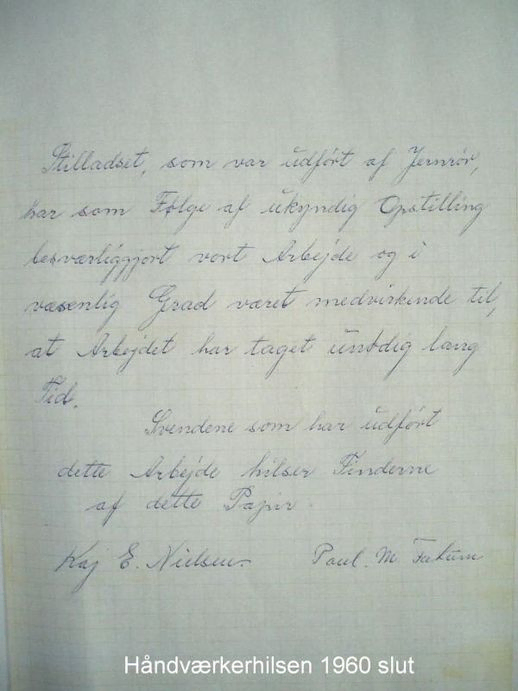 Stilladset, som var udført af Jernrør,
har som Følge af ukyndig Opstilling
besværliggjort vort Arbejde og i
væsenlig Grad været medvirkende til,
at Arbejdet har taget unødig lang
Tid.
Svendene som har udført
dette Arbejde hilser Finderne
af dette Papir
Kaj E. Nielsen. Poul. M.
Håndværkerhilsen 1960 slut